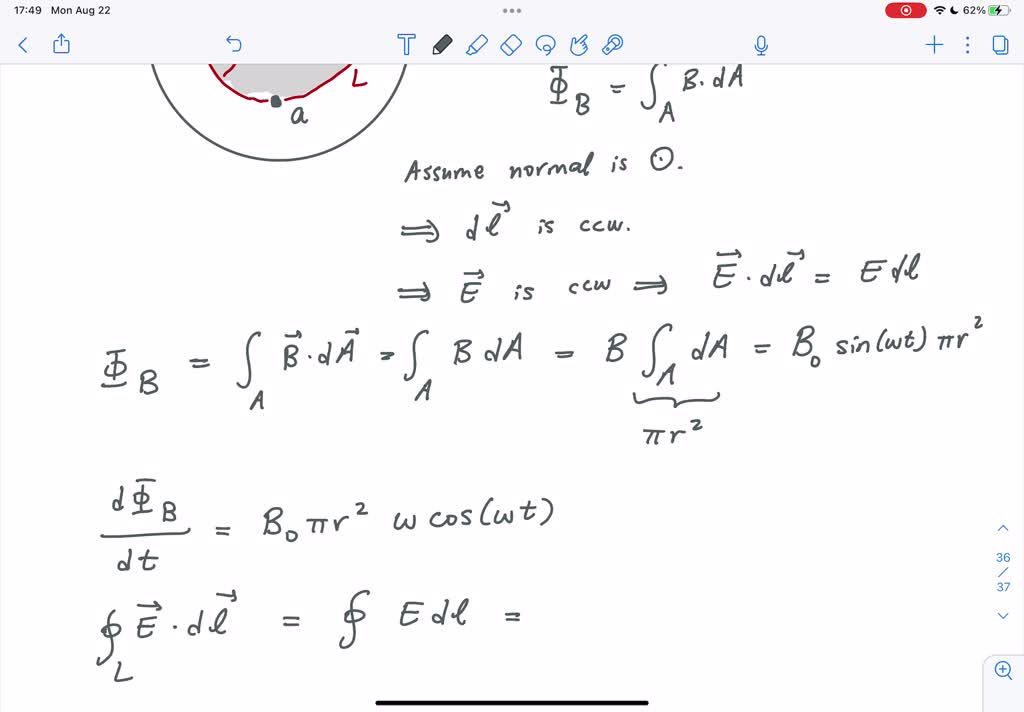 17:49 Mon Aug 22
62%
L
a
Φ_B = ∫_A B · dA
Assume normal is ⊙.
⟹ dl⃗ is ccw.
⟹ E⃗ is ccw ⟹ E⃗ · dl⃗ = E dl
Φ_B = ∫_A B⃗ · dA⃗ = ∫_A B dA = B ∫_A dA = B₀ sin(ωt) πr²
πr²
dΦ_B/dt = B₀ πr² ω cos(ωt)
∮_L E⃗ · dl⃗ = ∮ E dl =
36
/
37